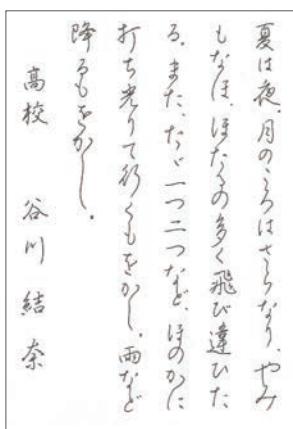 夏は夜。月のころはさらなり、やみ
もなほ、ほたるの多く飛び違ひた
る。また、ただ一つ二つなど、ほのかに
打ち光りて行くもをかし。雨など
降るもをかし。
高校 谷川結奈